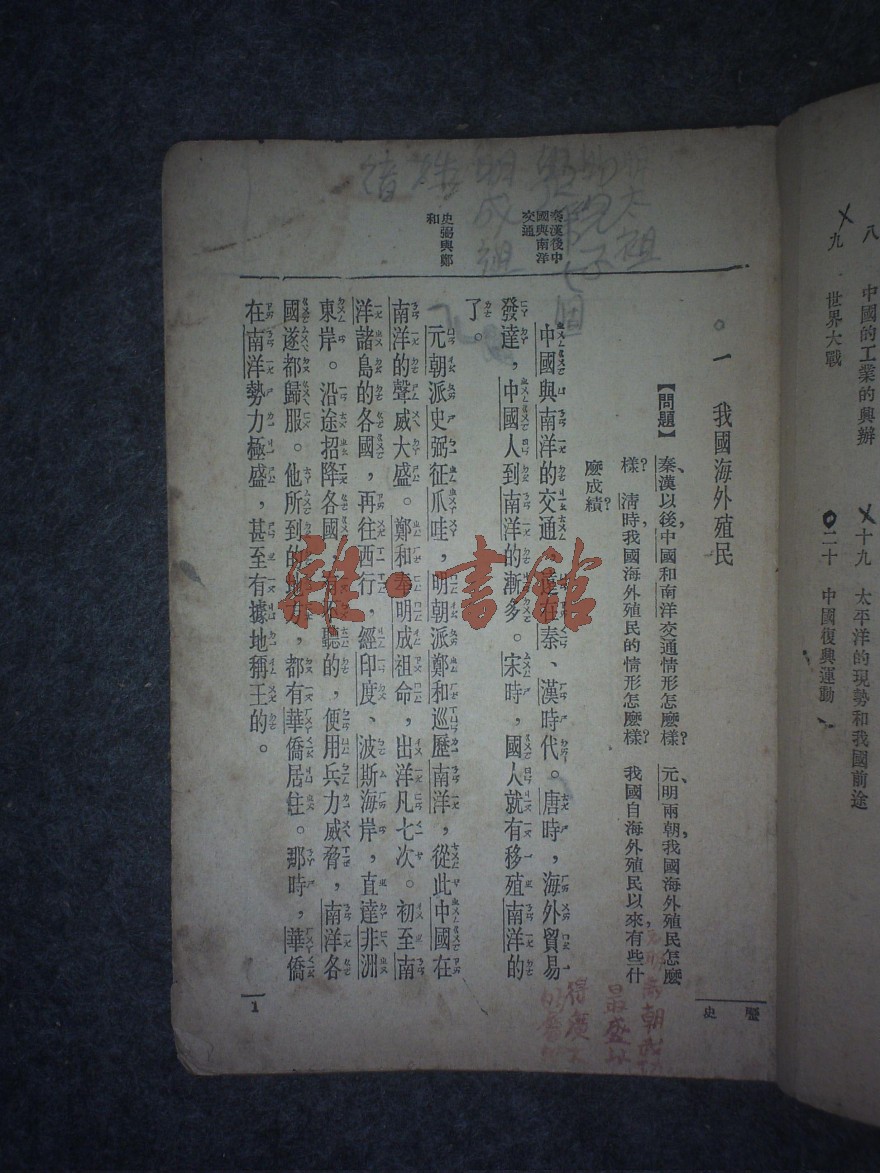 八 中國的工業的興辦
十九 太平洋的現勢和我國前途
九 世界大戰
二十 中國復興運動
歷史
一 我國海外殖民
【問題】 秦、漢以後，中國和南洋交通情形怎麼樣？ 元、明兩朝，我國海外殖民怎麼
樣？ 清時，我國海外殖民的情形怎麼樣？ 我國自海外殖民以來，有些什
麼成績？
秦漢後中
國與南洋
交通
中國與南洋的交通，遠在秦、漢時代。唐時，海外貿易
發達，中國人到南洋的漸多。宋時，國人就有移殖南洋的
了。
史弼與鄭
和
元朝派史弼征爪哇，明朝派鄭和巡歷南洋，從此中國在
南洋的聲威大盛。鄭和奉明成祖命，出洋凡七次。初至南
洋諸島的各國，再往西行，經印度、波斯海岸，直達非洲
東岸。沿途招降各國，有不聽的，便用兵力威脅，南洋各
國遂都歸服。他所到的地方，都有華僑居住。那時，華僑
在南洋勢力極盛，甚至有據地稱王的。
1
明太祖
明成祖
雜·書館